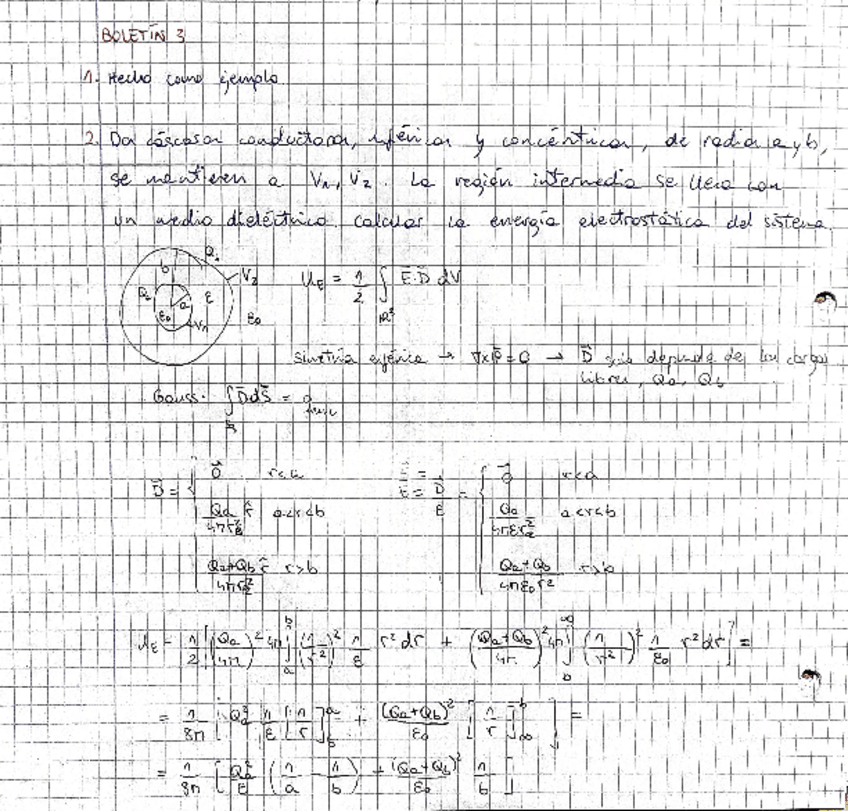 BOLETÍN 3
1. Hecho como ejemplo
2. Dos cáscaras conductoras, esféricas y concéntricas, de radio a y b,
se mantienen a V₁, V₂. La región intermedia se llena con
un medio dieléctrico. calcular la energía electrostática del sistema.
b Qb V₂ Qa a ε ε₀ V₁ ε₀
U_E = 1/2 ∫_{R³} E⃗·D⃗ dV
simetría esférica → ∇×P⃗ = 0 → D⃗ solo depende de las cargas
libres, Qa, Qb
Gauss. ∫ D⃗ dS⃗ = q
D⃗ = { 0⃗ r<a E⃗ = D⃗/ε = { 0⃗ r<a
Qa/4πr² r̂ a<r<b Qa/4πεr² a<r<b
Qa+Qb/4πr² r̂ r>b Qa+Qb/4πε₀r² r>b
U_E = 1/2 [(Qa/4π)² 4π ∫_a^b (1/r²)² 1/ε r² dr + ((Qa+Qb)/4π)² 4π ∫_b^∞ (1/r²)² 1/ε₀ r² dr] =
= 1/8π [Qa² 1/ε [1/r]_b^a + (Qa+Qb)²/ε₀ [1/r]_∞^b ] =
= 1/8π [Qa²/ε (1/a − 1/b) + (Qa+Qb)²/ε₀ 1/b]